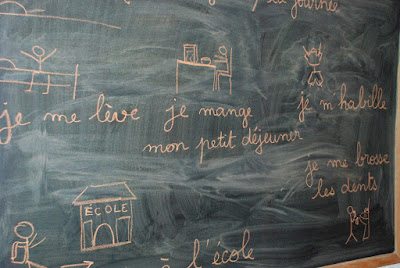 la journée
je me lève
je mange
mon petit déjeuner
je m'habille
je me brosse
les dents
ÉCOLE
à l'école